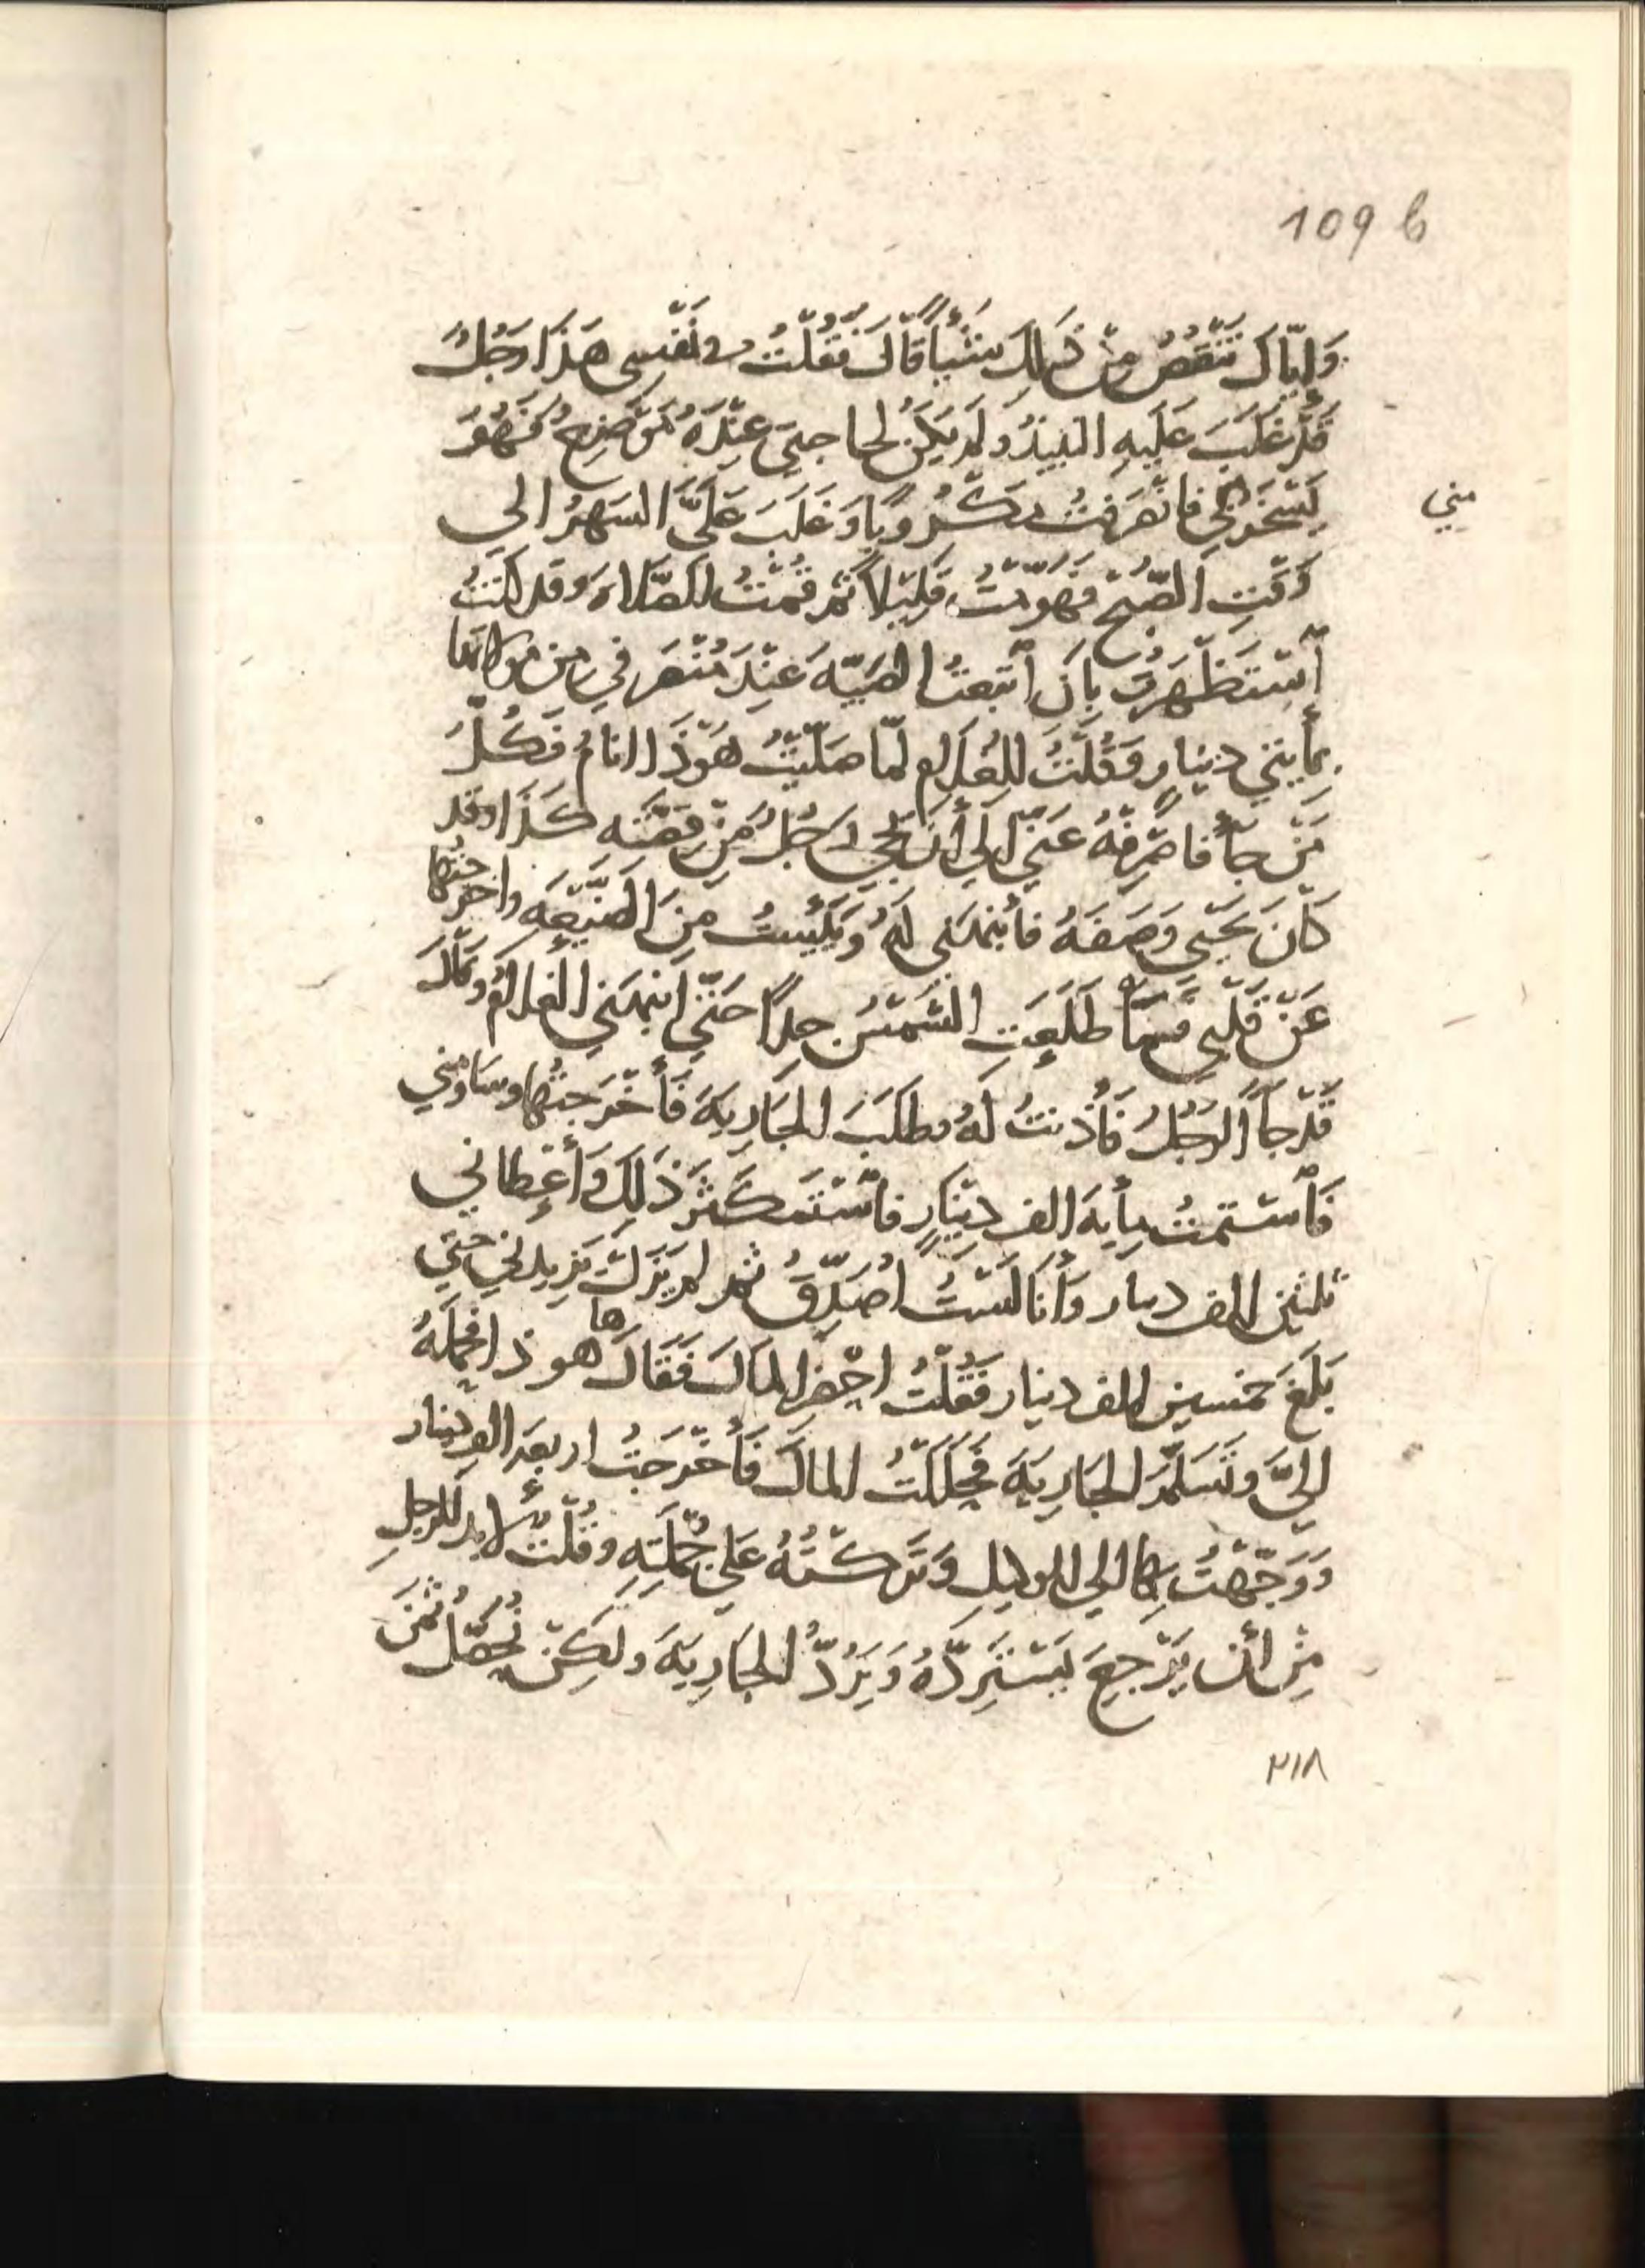 109 b
وَإِيّاكَ تَنْقُصُ مِنْ ذَلِكَ شَيْأً قَالَ فَقُلْتُ في نَفْسِي هَذَا رَجُلٌ
قَدْ غَلَبَ عَلَيهِ النبيذُ ولَم يَكُنْ لحاجتي عِنْدَهُ مَوْضِعٌ فَهُوَ
يَسْخَرُ بي فانْصَرفتُ مَكْرُوباً وَغَلَبَ عَلَيَّ السَهَرُ إلي
مِني
وَقْتِ الصُّبح فَهَوَّمْتُ قَلِيْلاً ثم قُمْتُ للصَّلاه وقد كنتُ
أسْتَظْهَرْتُ بِاَن أتبعتُ الصَبيَّه عِنْدَ مُنْصَرفي مِن مولاتها
بمأيتي دينارٍ وَقُلْتُ للغلام لمّا صَلّيْتُ هَوْذَا انامُ فَكُلُّ
مَنْ جآءُ فاصْرِفْهُ عَنّي إلي أَن يجي رَجُلٌ مِنْ قِصَّتِه كَذَا وقد
كَانَ يَحْيَى وَصَفَهُ فأنبهني لَهُ وَيَئِيستُ مِنَ الصَنيْعَه واخرجتُها
عَنْ قَلْبي فَمَا طَلَعَتِ الشَمْسُ جِداً حَتّي انبهَني الغلامُ وقَالَ
قَدْ جآءَ الرَجُلُ فَأَذِنتُ لَهُ وطلَبَ الجَارِيَةَ فَأَخْرَجتُها وسَاوَمني
فَأسْتمتُ مِأيه الف دِيْنَارٍ فاسْتَكْثَرَ ذَلِكَ وَأَعْطاني
ثلثين الف دينار وَأَنَا لَسْتُ اُصَدِّقُ ثم لم يَزَلْ يَزيدني حتي
بَلَغَ خمسين الف دينار فَقُلْتُ احْضِرِ المَالَ فَقَالَ ها هوذا فحَمَلَهُ
إِلَيَّ وتَسَلَّمَ الجَارِيَةَ فَحَلَلْتُ المالَ فَأَخْرَجتُ اربعه الف دينار
وَوَجَّهْتُ بها الي الوكيلِ وَتَركْتُهُ عَلي جُمْلَتِهِ وقُلْتُ لابد للرجلِ
مِنْ أن يَرْجعَ يَسْتَرِدَّهُ وَيَرُدُّ الجَارِيَةَ ولَكِنْ نُحَصِّلُ ثَمَنَ
٢١٨